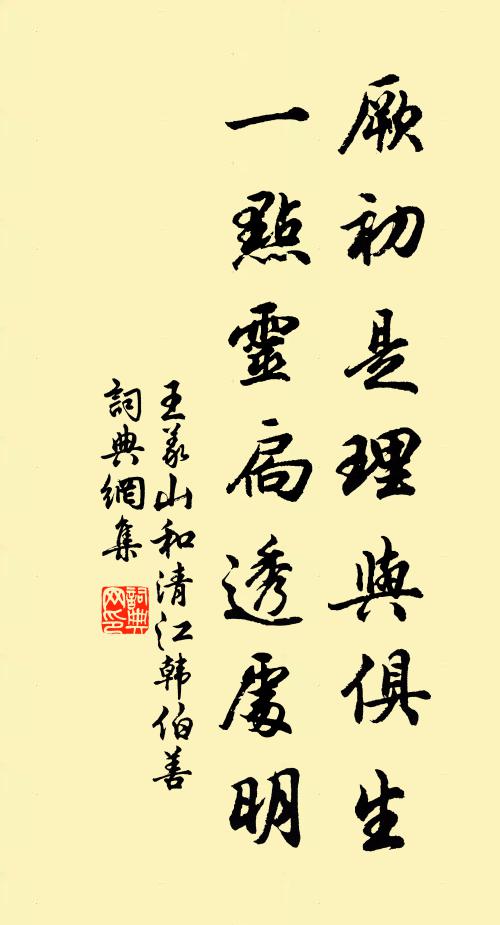 厥初是理與俱生
一點靈扃透處明
王義山和清江韩伯善
詞典網集
詞典
网印